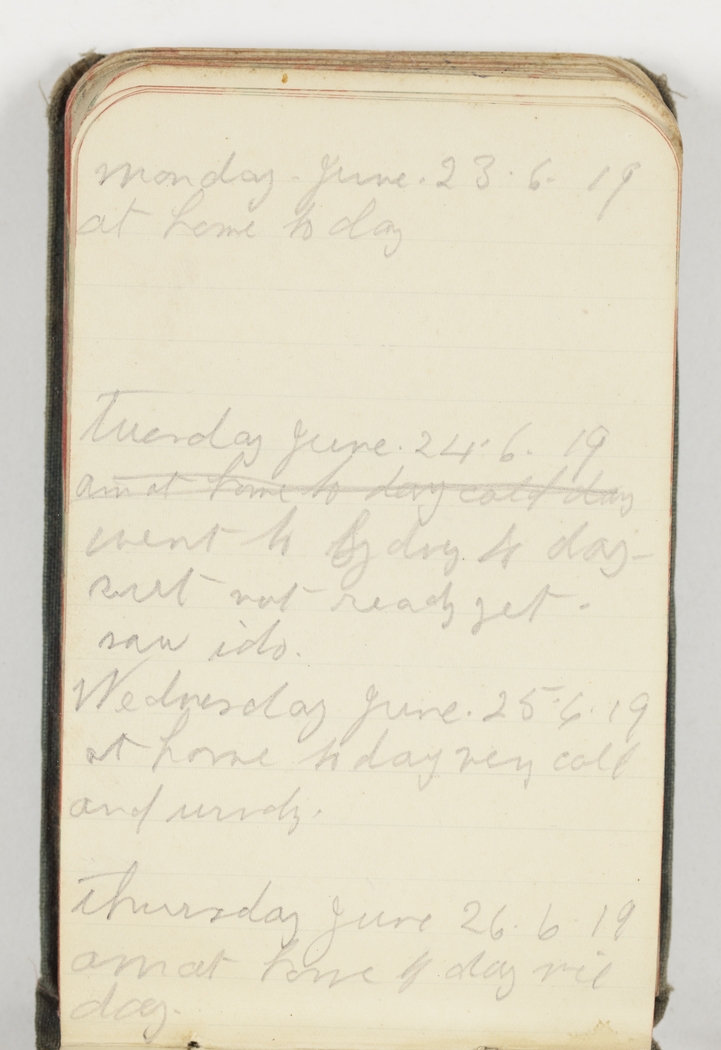 Monday. June. 23. 6. 19
at home to day
Tuesday June. 24. 6. 19
am at home to day cold day
went to Sydney to day -
suit not ready yet.
saw ido.
Wednesday June. 25. 6. 19
at home to day very cold
and windy.
Thursday June 26. 6 19
am at home to day
day.